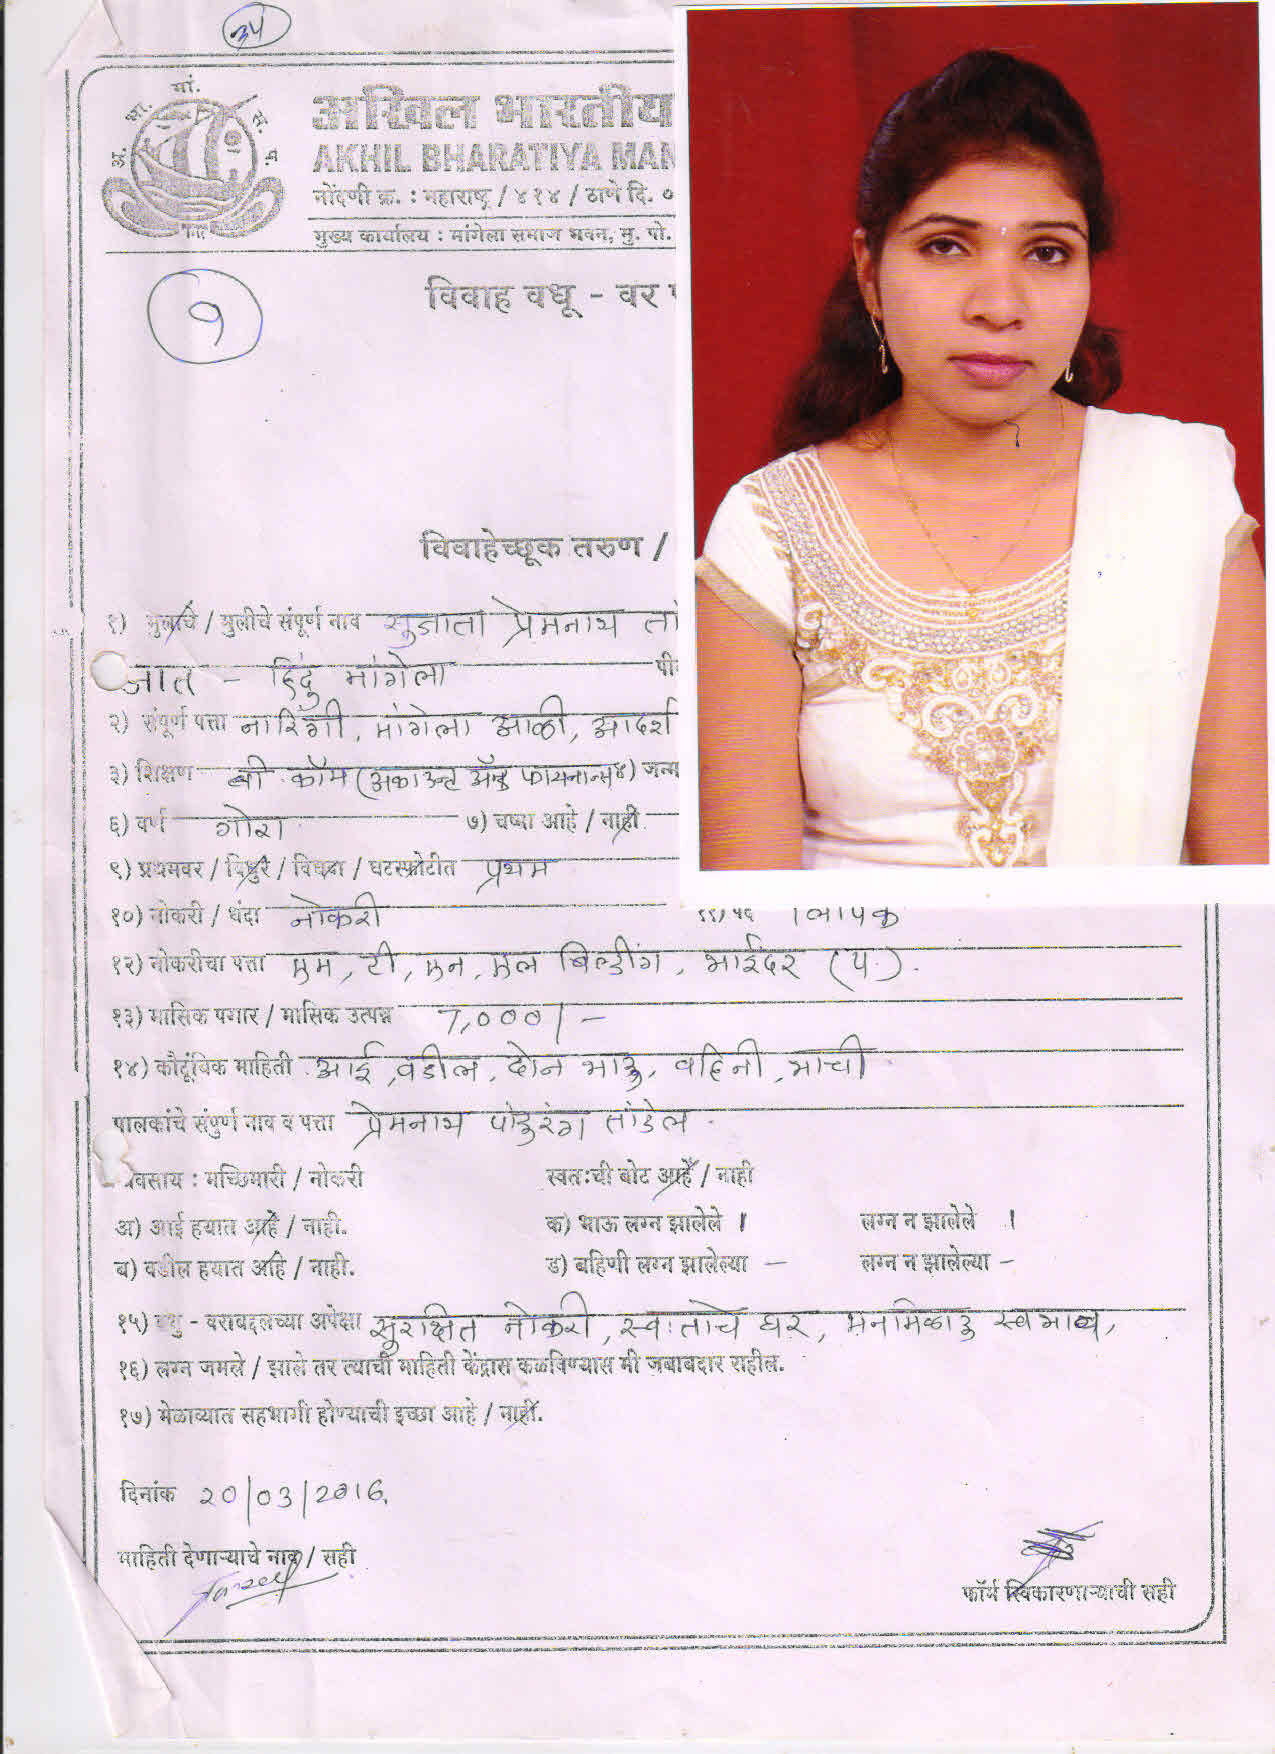 ३५
अ. भा. मां. स. प.
अखिल भारतीय
AKHIL BHARATIYA MAN
नोंदणी क्र. : महाराष्ट्र / ४१४ / ठाणे दि. ०
मुख्य कार्यालय : मांगेला समाज भवन, मु. पो.
१
विवाह वधू - वर
विवाहेच्छूक तरुण /
१) मुलाचे / मुलीचे संपूर्ण नाव सुजाता प्रेमनाथ तां
जात - हिंदु मांगेला
२) संपूर्ण पत्ता नारिंगी, मांगेला आळी, आदर्श
३) शिक्षण बी. कॉम (अकाउन्ट अँड फायनान्स ४) जन्म
६) वर्ण गोरा ७) चष्मा आहे / नाही
९) प्रथमवर / विधुर / विधवा / घटस्फोटीत प्रथम
१०) नोकरी / धंदा नोकरी ११) पद लिपिक
१२) नोकरीचा पत्ता एम, टी, एन, एल बिल्डींग, भाईंदर (प).
१३) मासिक पगार / मासिक उत्पन्न 7,000/-
१४) कौटूंबिक माहिती आई, वडील, दोन भाऊ, वहिनी, भाची
पालकांचे संपुर्ण नाव व पत्ता प्रेमनाथ पांडुरंग तांडेल.
वसाय : मच्छिमारी / नोकरी स्वतःची बोट आहे / नाही
अ) आई हयात आहे / नाही. क) भाऊ लग्न झालेले । लग्न न झालेले ।
ब) वडील हयात आहे / नाही. ड) बहिणी लग्न झालेल्या - लग्न न झालेल्या -
१५) वधु - वराबद्दलच्या अपेक्षा सुरक्षित नोकरी, स्वःताचे घर, मनमिळाऊ स्वभाव,
१६) लग्न जमले / झाले तर त्याची माहिती केंद्रास कळविण्यास मी जबाबदार राहील.
१७) मेळाव्यात सहभागी होण्याची इच्छा आहे / नाही.
दिनांक 20/03/2016.
माहिती देणाऱ्याचे नाव / सही
फॉर्म स्विकारणाऱ्याची सही